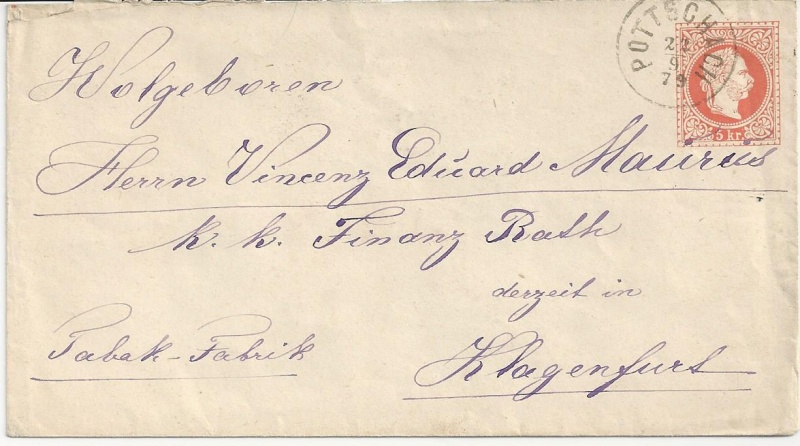 POTTSCHACH
9
79
5 kr.
Wolgebören
Herrn Vincenz Eduard Maurus
k. k. Finanz Rath
derzeit in
Tabak-Fabrik
Klagenfurt